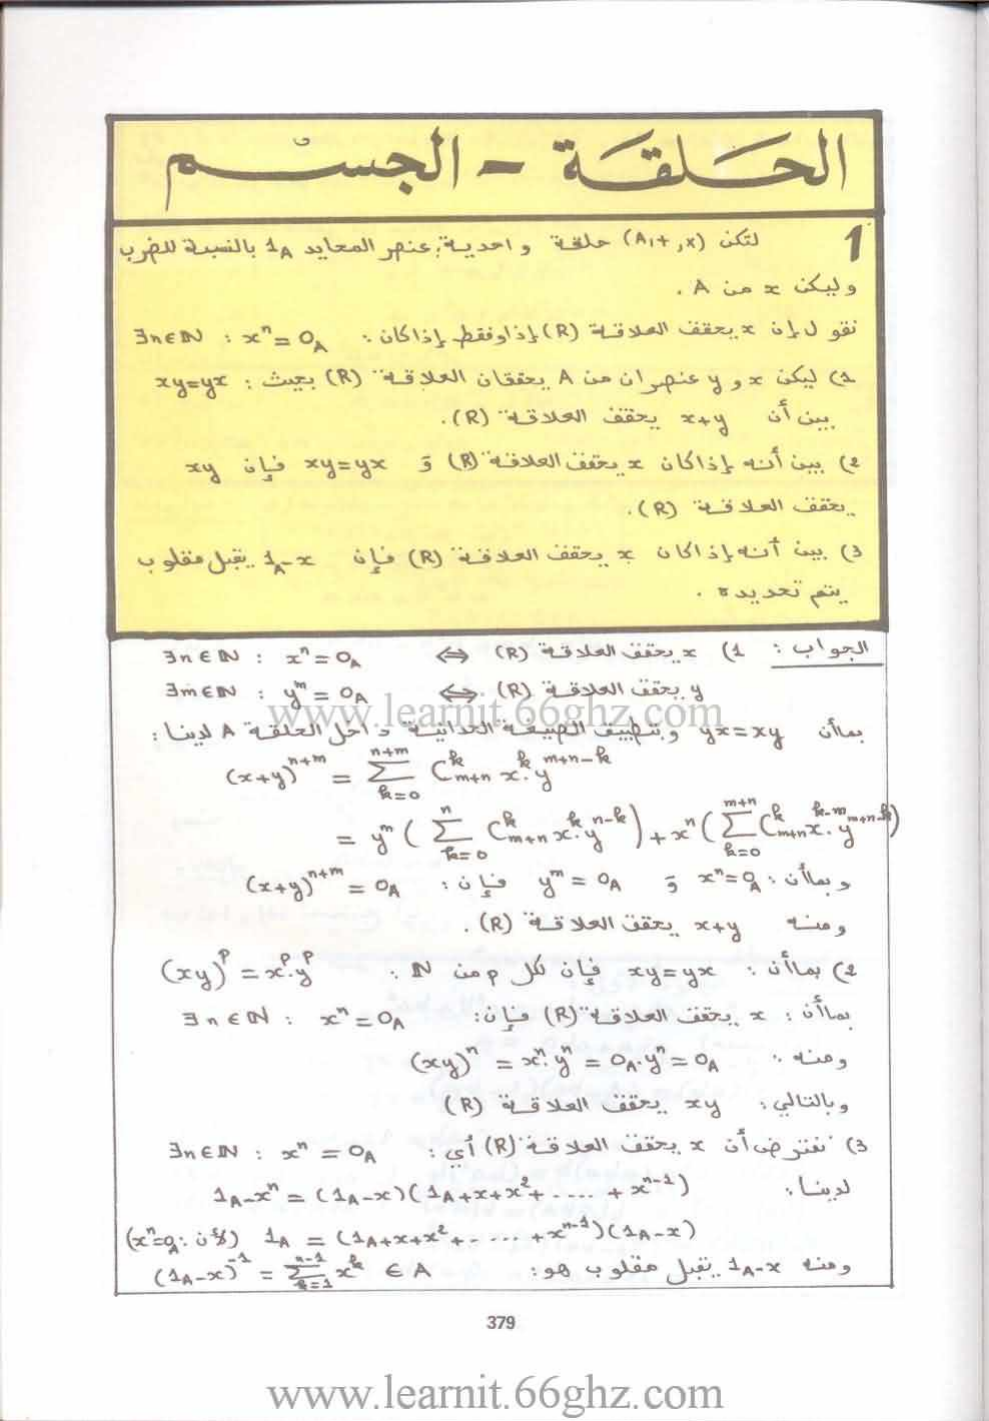 الحلقة - الجسم
1 لتكن (A,+,x) حلقة واحدية، عنصر المحايد 1_A بالنسبة للضرب
وليكن x من A .
نقول إن x يحقق العلاقة (R) إذا وفقط إذا كان : ∃n∈ℕ : x^n = 0_A
1) ليكن x و y عنصران من A يحققان العلاقة (R) بحيث : xy=yx
بين أن x+y يحقق العلاقة (R).
2) بين أنه إذا كان x يحقق العلاقة (R) و xy=yx فإن xy
يحقق العلاقة (R).
3) بين أنه إذا كان x يحقق العلاقة (R) فإن 1_A-x يقبل مقلوب
يتم تحديده .
الجواب : 1) x يحقق العلاقة (R) ⇔ ∃n∈ℕ : x^n = 0_A
y يحقق العلاقة (R) ⇔ ∃m∈ℕ : y^m = 0_A
www.learnit.66ghz.com
بما أن yx=xy وبتطبيق الصيغة الحدانية داخل الحلقة A لدينا :
(x+y)^{n+m} = Σ_{k=0}^{n+m} C_{m+n}^k x^k . y^{m+n-k}
= y^m ( Σ_{k=0}^{n} C_{m+n}^k x^k . y^{n-k} ) + x^n ( Σ_{k=0}^{m+n} C_{m+n}^k x^{k-m} . y^{m+n-k} )
و بما أن : x^n = 0_A و y^m = 0_A فإن : (x+y)^{n+m} = 0_A
ومنه x+y يحقق العلاقة (R) .
2) بما أن : xy=yx فإن لكل p من ℕ : (xy)^p = x^p . y^p
بما أن : x يحقق العلاقة (R) فإن : ∃n∈ℕ : x^n = 0_A
ومنه : (xy)^n = x^n . y^n = 0_A . y^n = 0_A
وبالتالي : xy يحقق العلاقة (R)
3) نفترض أن x يحقق العلاقة (R) أي : ∃n∈ℕ : x^n = 0_A
لدينا : 1_A - x^n = (1_A - x)(1_A + x + x^2 + .... + x^{n-1})
1_A = (1_A + x + x^2 + ..... + x^{n-1})(1_A - x) (لأن : x^n = 0_A)
ومنه 1_A - x يقبل مقلوب هو : (1_A - x)^{-1} = Σ_{k=1}^{n-1} x^k ∈ A
379
www.learnit.66ghz.com